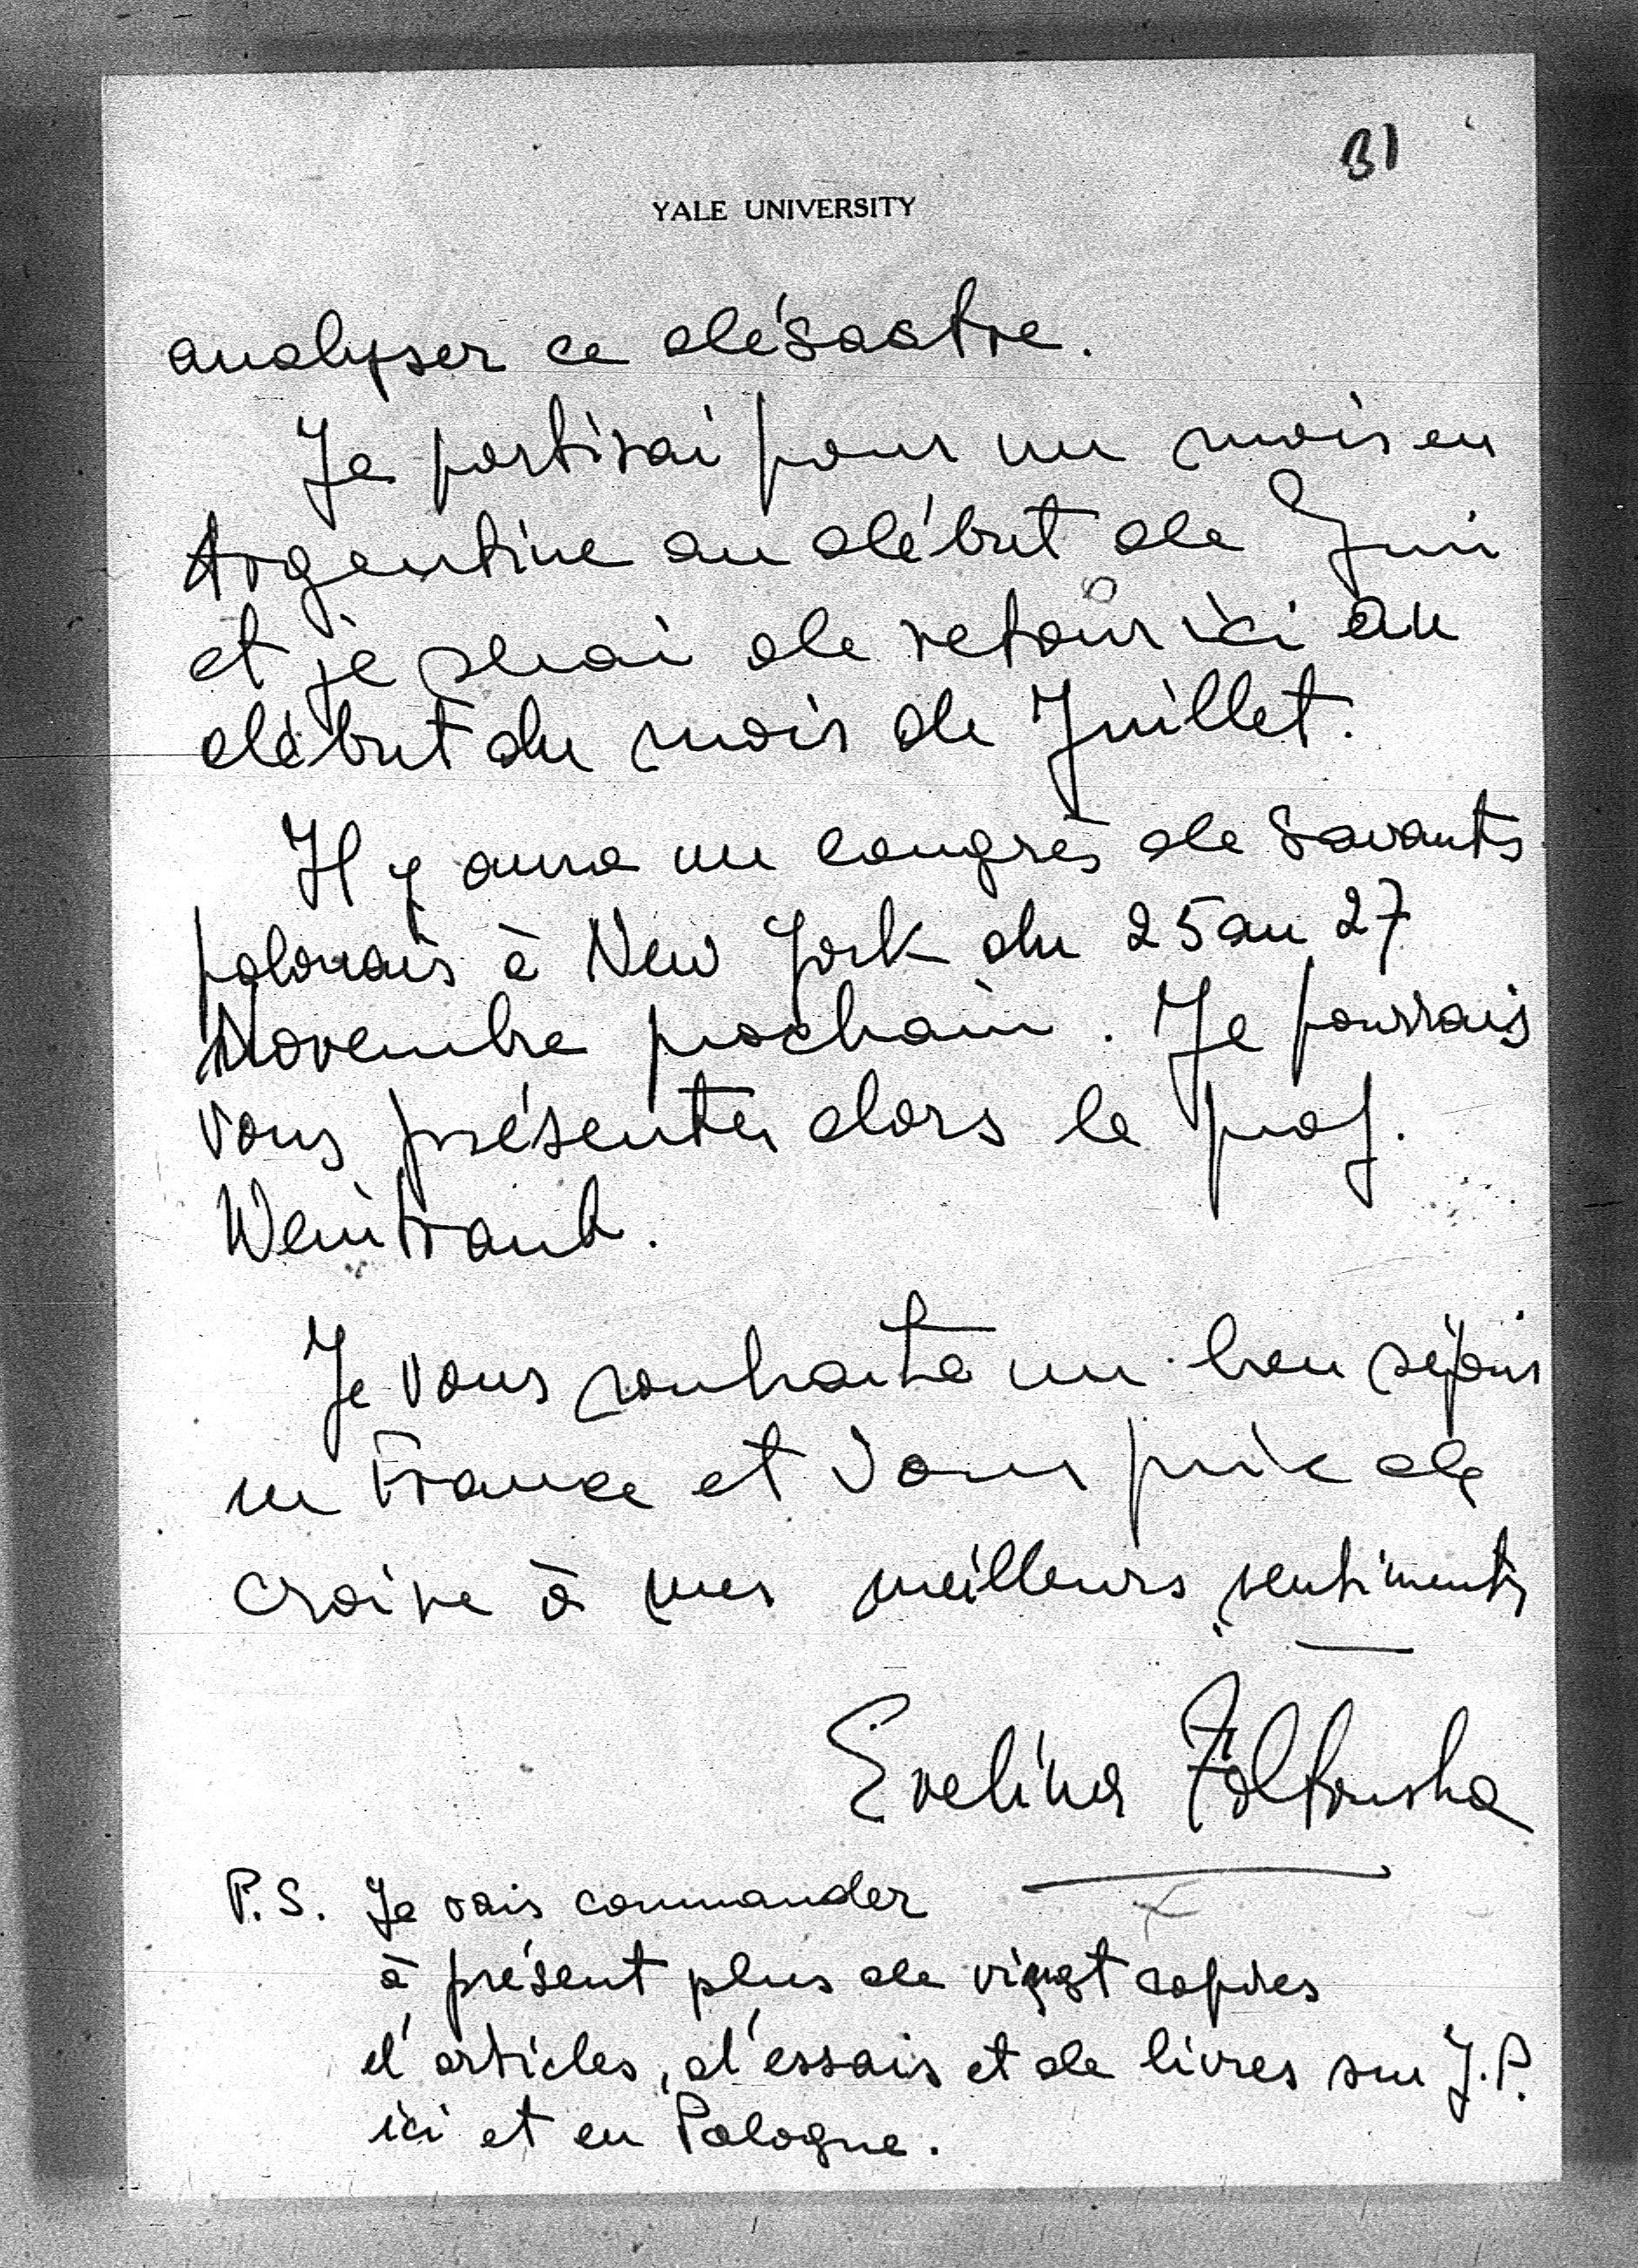 31
YALE UNIVERSITY
analyser ce désastre.
Je partirai pour un mois en
Argentine au début de Juin
et je serai de retour ici au
début du mois de Juillet.
Il y aura un congrès de savants
polonais à New York du 25 au 27
Novembre prochain. Je pourrais
vous présenter alors le prof.
Weintraub.
Je vous souhaite un bon séjour
en France et vous prie de
croire à mes meilleurs sentiments
Evelina Żółtowska
P.S. Je vais commander
à présent plus de vingt copies
d'articles, d'essais et de livres sur J.P.
ici et en Pologne.